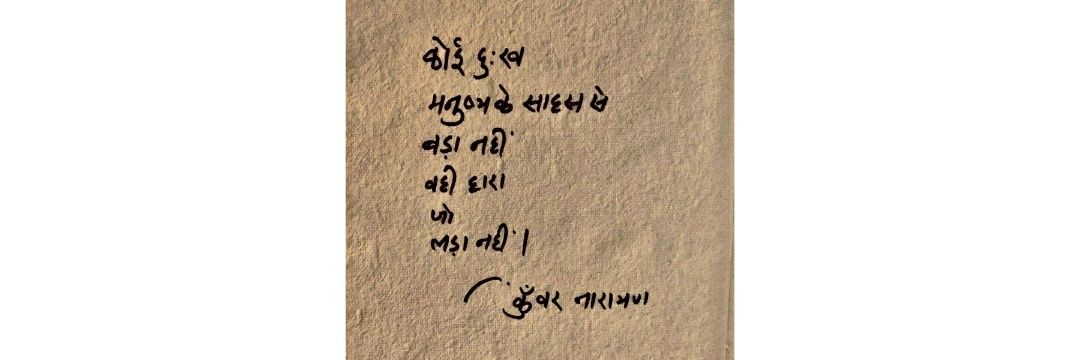 कोई दुःख
मनुष्य के साहस से
बड़ा नहीं
वही हारा
जो
लड़ा नहीं।
कुँवर नारायण